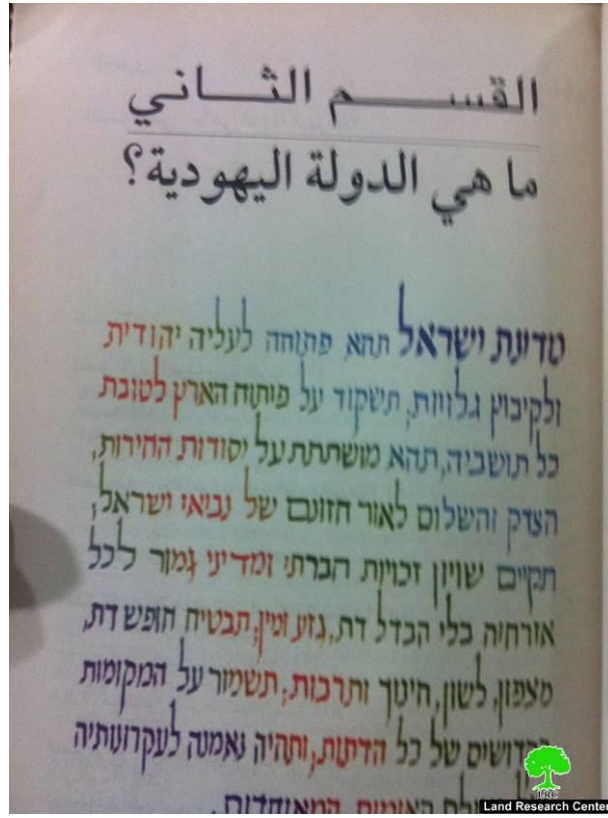 القسم الثاني
ما هي الدولة اليهودية؟
מדינת ישראל תהא פתוחה לעליה יהודית
ולקיבוץ גלויות, תשקוד על פיתוח הארץ לטובת
כל תושביה, תהא מושתתת על יסודות החירות,
הצדק והשלום לאור חזונם של נביאי ישראל,
תקיים שויון זכויות חברתי ומדיני גמור לכל
אזרחיה בלי הבדל דת, גזע ומין, תבטיח חופש דת,
מצפון, לשון, חינוך ותרבות, תשמור על המקומות
הקדושים של כל הדתות, ותהיה נאמנה לעקרונותיה
האומות המאוחדות.
LRC
Land Research Center